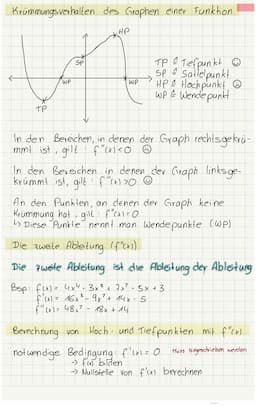 Krümmungsverhalten des Graphen einer Funktion
HP
SP
WP
WP
TP
TP ≙ Tiefpunkt ☺
SP ≙ Sattelpunkt
HP ≙ Hochpunkt ☹
WP ≙ Wendepunkt
In den Bereichen, in denen der Graph rechtsgekrü-
mmt ist, gilt: f''(x)<0 ☹
In den Bereichen in denen der Graph linksge-
krümmt ist, gilt: f''(x)>0 ☺
An den Punkten, an denen der Graph keine
Krümmung hat, gilt: f''(x)=0
↳ Diese "Punkte" nennt man Wendepunkte (WP)
Die zweite Ableitung (f''(x))
Die zweite Ableitung ist die Ableitung der Ableitung
Bsp: f(x) = 4x⁴ - 3x³ + 7x² - 5x + 3
f'(x) = 16x³ - 9x² + 14x - 5
f''(x) = 48x² - 18x + 14
Berechnung von Hoch- und Tiefpunkten mit f''(x)
notwendige Bedingung: f'(x) = 0 Muss hingeschrieben werden
→ f'(x) bilden
→ Nullstelle von f'(x) berechnen